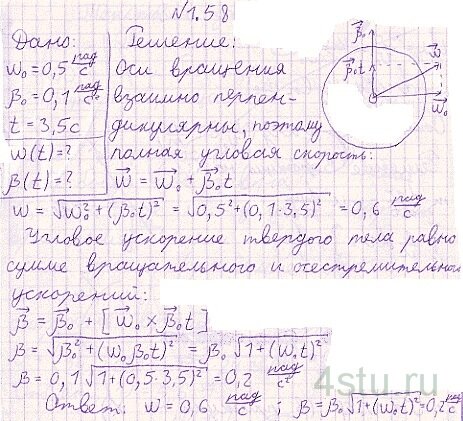 №1.58
Дано: Решение:
ω₀ = 0,5 рад/с Оси вращения
β₀ = 0,1 рад/с² взаимно перпен-
t = 3,5 с дикулярны, поэтому
ω(t) = ? полная угловая скорость:
β(t) = ? w⃗ = w⃗₀ + β⃗₀t
β⃗₀
β⃗₀t
w⃗
w⃗₀
w = √(w₀² + (β₀t)²) = √(0,5² + (0,1·3,5)²) = 0,6 рад/с
Угловое ускорение твердого тела равно
сумме вращательного и осестремительного
ускорений:
β⃗ = β⃗₀ + [w⃗₀ × β⃗₀t]
β = √(β₀² + (w₀β₀t)²) = β₀√(1+(w₀t)²)
β = 0,1√(1+(0,5·3,5)²) = 0,2 рад/с²
4stu.ru
Ответ: w = 0,6 рад/с ; β = β₀√(1+(w₀t)²) = 0,2 рад/с²